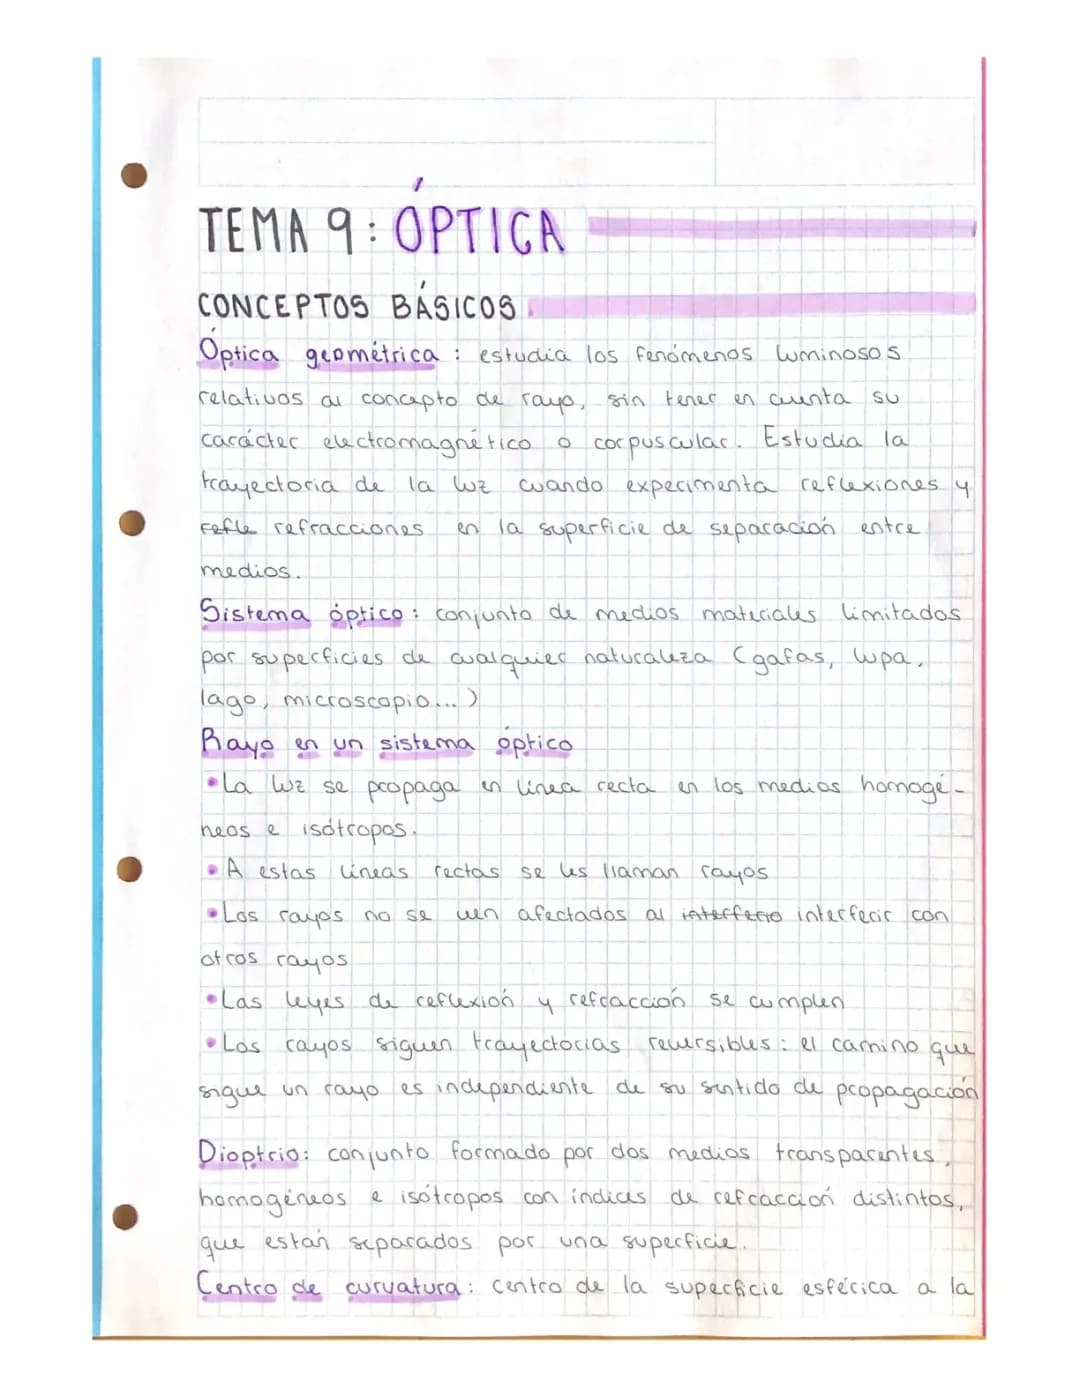 TEMA 9: ÓPTICA
CONCEPTOS BÁSICOS
Óptica geométrica: estudia los fenómenos luminosos
relativos al concepto de rayo, sin tener en cuenta su
carácter electromagnético o corpuscular. Estudia la
trayectoria de la luz cuando experimenta reflexiones y
refle refracciones en la superficie de separación entre
medios.
Sistema óptico: conjunto de medios materiales limitados
por superficies de cualquier naturaleza (gafas, lupa,
lago, microscopio...)
Rayo en un sistema óptico
•La luz se propaga en línea recta en los medios homogé-
neos e isótropos.
•A estas líneas rectas se les llaman rayos
•Los rayos no se ven afectados al interferio interferir con
otros rayos
•Las leyes de reflexión y refracción se cumplen
•Los rayos siguen trayectorias reversibles: el camino que
sigue un rayo es independiente de su sentido de propagación
Dioptrio: conjunto formado por dos medios transparentes,
homogéneos e isótropos con índices de refracción distintos,
que están separados por una superficie.
Centro de curvatura: centro de la superficie esférica a la